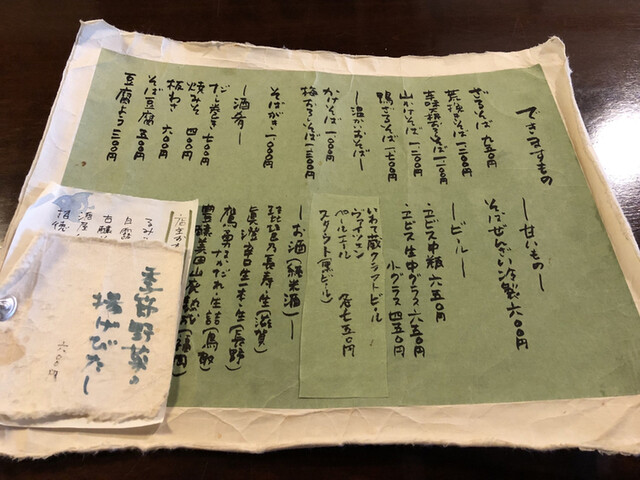 できますもの
ざるそば 九五〇円
荒挽きそば 一二〇〇円
山かけそば 一三〇〇円
鴨ざるそば 一七〇〇円
―温かいおそば―
かけそば 一〇〇〇円
梅おろしそば 一三〇〇円
そばがき 一〇〇〇円
―酒肴―
だし巻き 七〇〇円
焼みそ 四〇〇円
板わさ 六〇〇円
そば豆腐 五〇〇円
豆腐よう 三〇〇円
―甘いもの―
そばぜんざい 六〇〇円
―ビール―
ヱビス中瓶 六五〇円
ヱビス生中グラス 六五〇円
小グラス 四五〇円
いわて蔵クラフトビール
ヴァイツェン
ペールエール 各七五〇円
スタウト(黒ビール)
―お酒(純米酒)―
琵琶乃長寿 生(滋賀)
(長野)
(鳥取)
(福岡)
季節野菜の
揚げびたし
六〇〇円